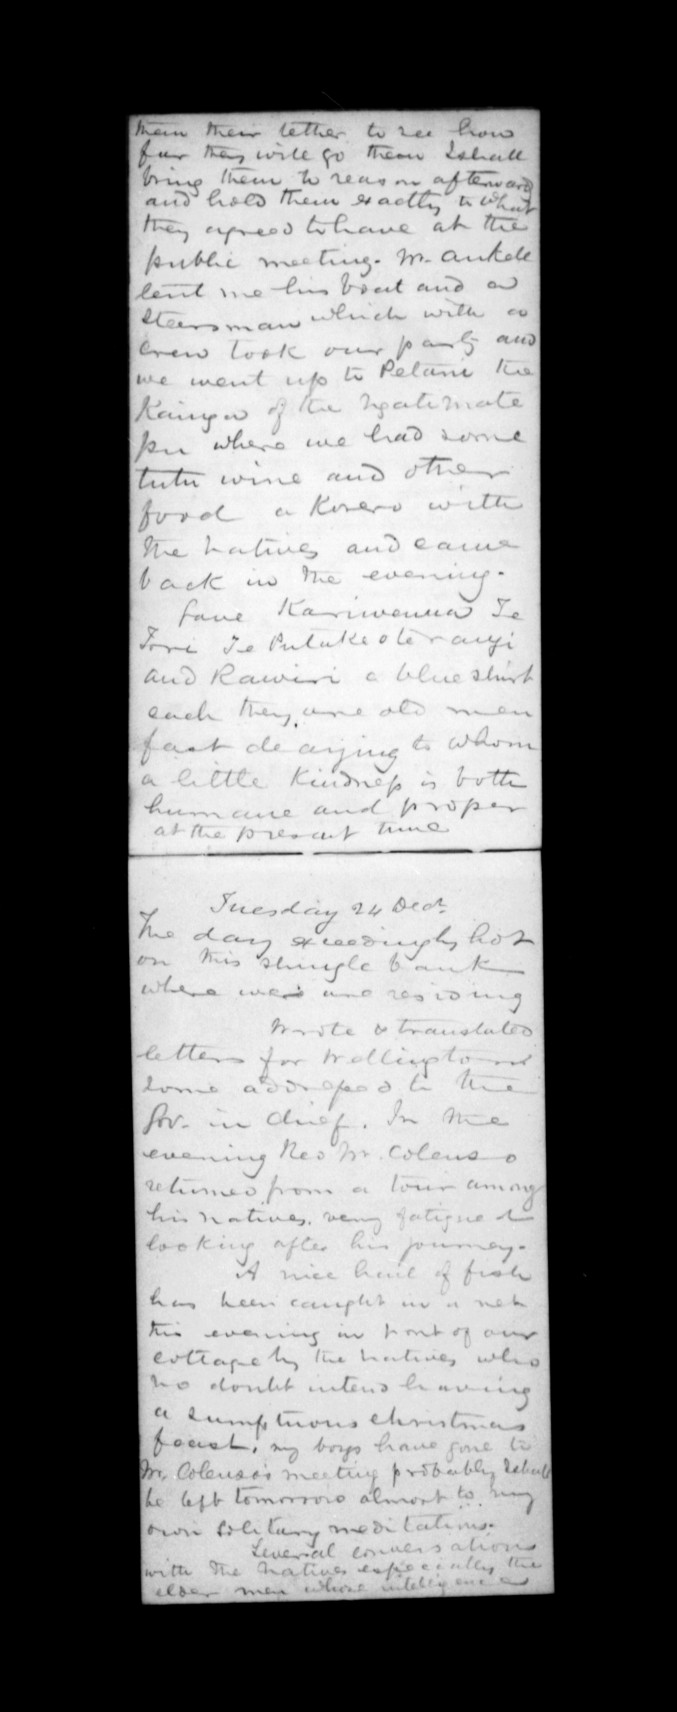 them their tether to see how
far they will go then I shall
bring them to reason afterwards
and hold them exactly to what
they agreed to have at the
public meeting. Mr. Ankell
lent me his boat and a
steersman which with a
crew took our party and
we went up to Petani the
Kainga of the Ngatimate
pu where we had some
tutu wine and other
food a Korero with
the natives and came
back in the evening.
Gave Kariwenua Te
Tori Te
and Rawiri a blue shirt
each they are old men
fast decaying to whom
a little kindness is both
humane and proper
at the present time
Tuesday 24 Decr.
The day exceedingly hot
on this shingle bank
where we are residing
Wrote & translated
letters for Wellington
some addressed to the
Gov. in Chief. In the
evening Rev Mr. Colenso
returned from a tour among
his natives. very fatigued
looking after his journey.
A nice haul of fish
has been caught in a net
this evening in front of our
cottage by the natives who
no doubt intend having
a sumptuous christmas
feast. my boys have gone to
Mr. Colenso's meeting probably I shall
be left tomorrow almost to my
own solitary meditations.
Several conversations
with the natives especially the
elder men whose intelligence